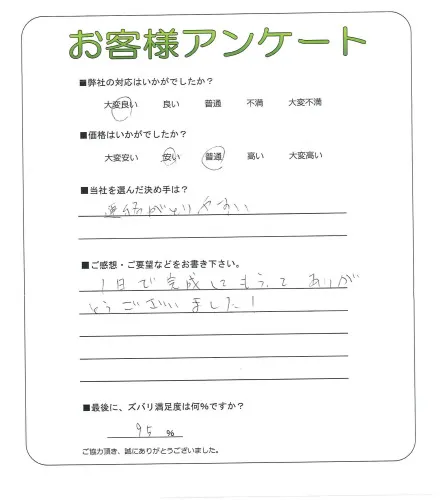 お客様アンケート
■弊社の対応はいかがでしたか？
大変良い 良い 普通 不満 大変不満
■価格はいかがでしたか？
大変安い 安い 普通 高い 大変高い
■当社を選んだ決め手は？
連絡がとりやすい
■ご感想・ご要望などをお書き下さい。
1日で完成してもらって ありが
とうございました！
■最後に、ズバリ満足度は何%ですか？
95 %
ご協力頂き、誠にありがとうございました。